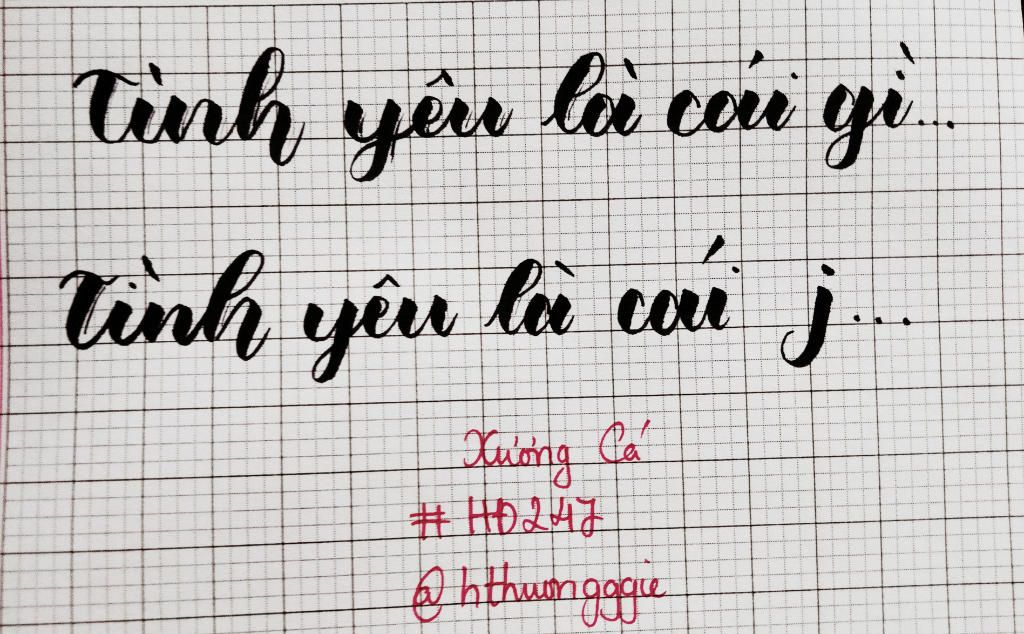 Tình yêu là cái gì...
Tình yêu là cái j...
Xương Cá
#HĐ247
@hthuongggie